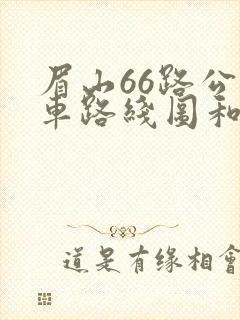 眉山66路公
車路綫圖和
道是有缘相會